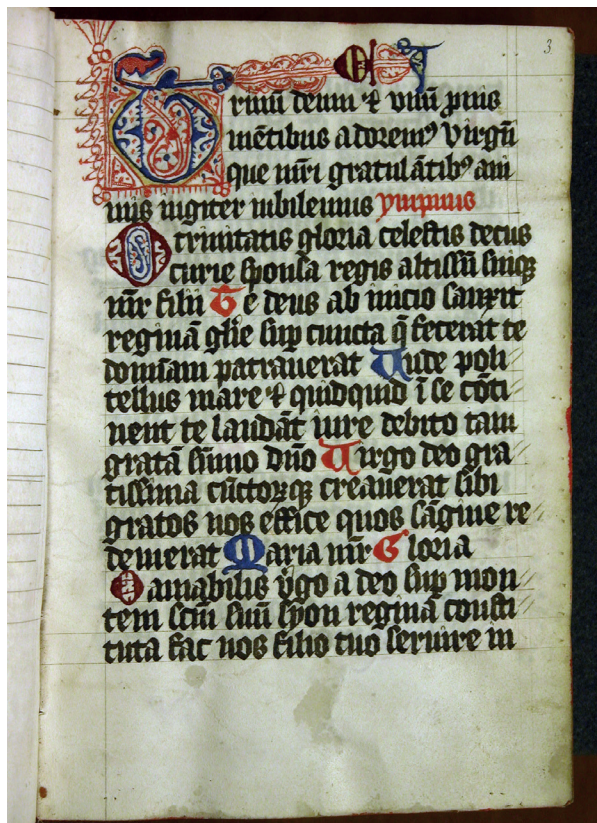 3
Trinū deum ⁊ vnū pnis
mētibus adoremꝰ virgīni
que nr̄i gratulātibꝰ ani
mis iugiter iubilemus ympnus
O trinitatis gloria celestis decus
curie sponsa regis altissī suiqꝫ
mr̄ filii Te deus ab inicio sanxit
reginā glīe suꝑ cuncta q̄ fecerat te
dominam patrauerat Unde poli
tellus mare ⁊ quidquid ī se cōti
nent te laudāt iure debito tam
gratā sūmo dn̄o Uirgo deo gra
tissima cūctorꝫqꝫ creauerat sibi
gratos nos effice quos sāgine re
demerat Maria mr̄ Gloria
O amabilis v̄go a deo suꝑ mon
tem scm̄ suū syon reginā consti
tuta fac nos filio tuo seruire in